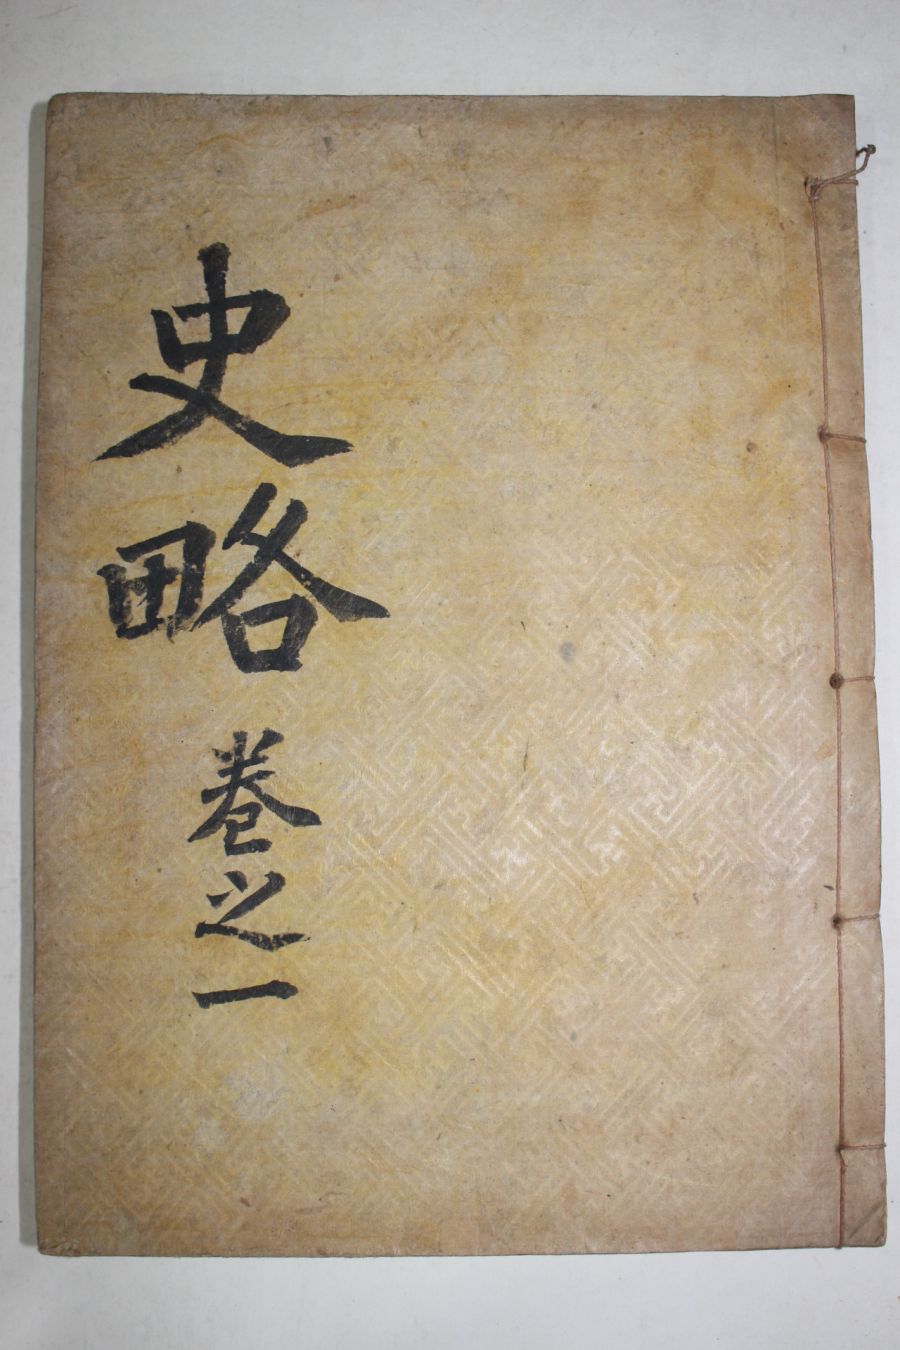 史略 卷之一